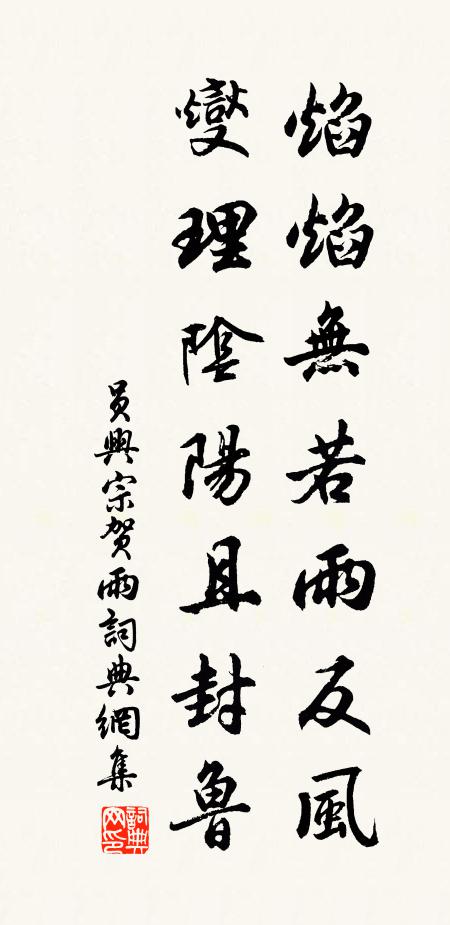 焰焰無若雨反風
燮理陰陽且封魯
員興宗賀雨詞典網集
詞典網印